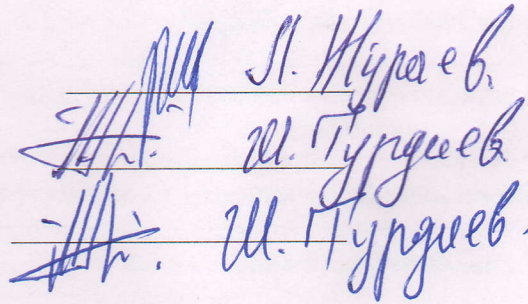 Л. Жураев.
Ш. Турдиев
Ш. Турдиев.